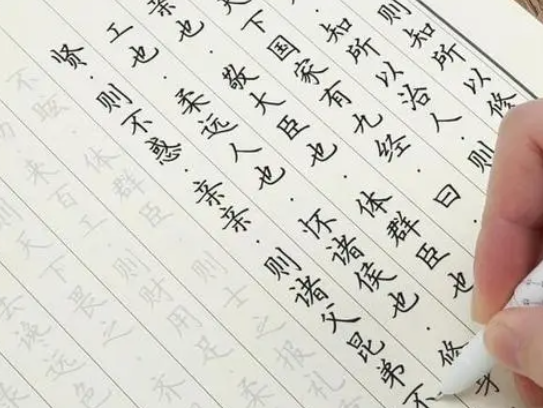 则知所以修
知所以治人·则
下国家有九经·曰
亲也·敬大臣也·体群臣也·
工也·柔远人也·怀诸侯也·修身
贤·则不惑·亲亲·则诸父昆弟不
不眩·体群臣·则士之报礼
来百工·则财用足
则天下畏之·齐
去谗远色